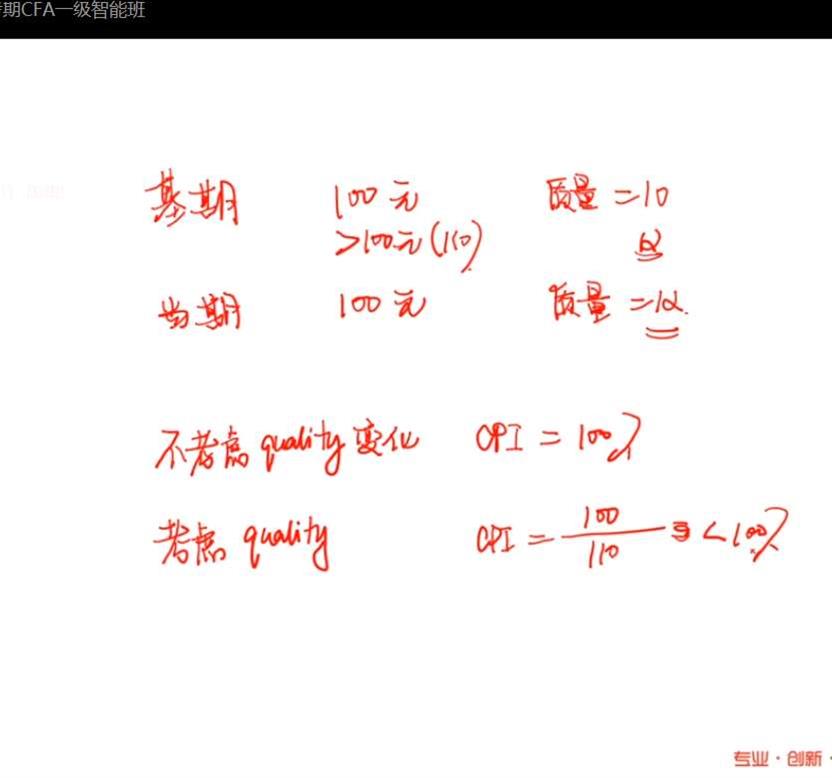 期CFA一级智能班
基期 100元 质量=10
>100元(110) 12
当期 100元 质量=12.
不考虑quality变化 CPI = 100%
考虑quality CPI = 100/110 < 100%
专业·创新·